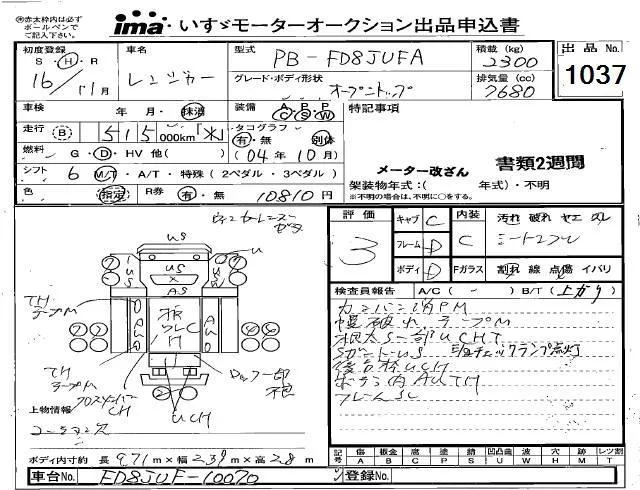 ※赤太枠内は必ず
ボールペンで
ご記入下さい。
ima いすゞモーターオークション出品申込書
初度登録
S・H・R
16年11月
車名
レンジャー
型式
PB-FD8JUFA
積載(kg)
2300
出品No.
1037
グレード・ボディ形状
オープントップ
排気量(cc)
7680
車検
年・月・抹消
装備 A/C P/S P/W
特記事項
走行 (B) 515 000km
タコグラフ
有・無 別体
(04年10月)
燃料 G・D・HV 他( )
メーター改ざん 書類2週間
シフト 6 M/T・A/T・特殊(2ペダル・3ペダル)
架装物年式:( 年式)・不明
※不明の場合は、不明に○をする。
色 指定 R券 有・無 10810円
評価
3
キャブ C
フレーム D
ボディ D
内装
C
汚れ 破れ ヤエ スレ
シートコゲ
Fガラス 割れ 線 点傷 イバリ
検査員報告 A/C( - ) B/T(上がり)
カンバン消PM
幌破れ テープM
根太S一部UCHT
SガードUS
チェックランプ点灯
後台枠UCH
あおり内AUTH
フレームSC
US
US
AS
TH
テープM
TH
テープM
CH
UCH
上物情報
コーションズ欠
ボディ内寸約 長9.71m×幅2.39m×高2.8m
記号 傷A 板金B 腐C 塗P 錆S 凹凸曲U 波W 穴H 欠K 割X レンズ割T
車台No. FD8JUF-10070 登録No.